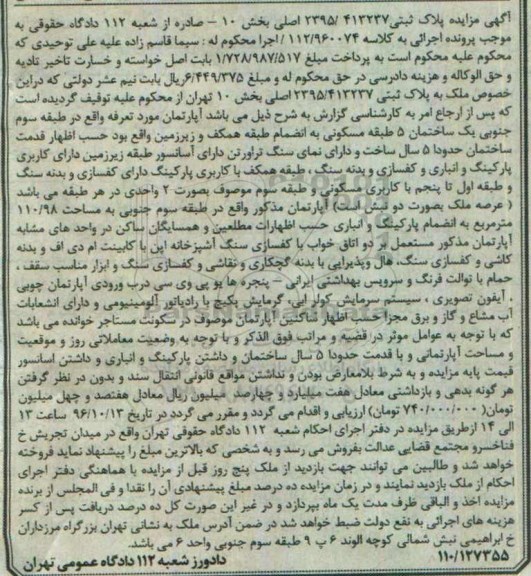 آگهی مزایده پلاک ثبتی ۴۱۳۲۳۷ /۲۳۹۵ اصلی بخش ۱۰ – صادره از شعبه ۱۱۲ دادگاه حقوقی به
موجب پرونده اجرائی به کلاسه ۱۱۲/۹۶۰۰۷۴ / اجرا محکوم له : سیما قاسم زاده علیه علی توحیدی که
محکوم علیه محکوم است به پرداخت مبلغ ۱/۷۲۸/۹۸۷/۵۱۷ بابت اصل خواسته و خسارت تاخیر تادیه
و حق الوکاله و هزینه دادرسی در حق محکوم له و مبلغ ۶/۴۴۹/۳۷۵ریال بابت نیم عشر دولتی که دراین
خصوص ملک به پلاک ثبتی ۲۳۹۵/۴۱۳۲۳۷ اصلی بخش ۱۰ تهران از محکوم علیه توقیف گردیده است
که پس از ارجاع امر به کارشناسی گزارش به شرح ذیل می باشد آپارتمان مورد تعرفه واقع در طبقه سوم
جنوبی یک ساختمان ۵ طبقه مسکونی به انضمام طبقه همکف و زیرزمین واقع بود حسب اظهار قدمت
ساختمان حدودا ۵ سال ساخت و دارای نمای سنگ تراورتن دارای آسانسور طبقه زیرزمین دارای کاربری
پارکینگ و انباری و کفسازی و بدنه سنگ ، طبقه همکف با کاربری پارکینگ دارای کفسازی و بدنه سنگ
و طبقه اول تا پنجم با کاربری مسکونی و طبقه سوم موصوف بصورت ۲ واحدی در هر طبقه می باشد
( عرصه ملک بصورت دو نبش است) آپارتمان مذکور واقع در طبقه سوم جنوبی به مساحت ۱۱۰/۹۸
مترمربع به انضمام پارکینگ و انباری حسب اظهارات مطلعین و همسایگان ساکن در واحد های مشابه
آپارتمان مذکور مستعمل بر دو اتاق خواب با کفسازی سنگ آشپزخانه اپن با کابینت ام دی اف و بدنه
کاشی و کفسازی سنگ، هال وپذیرایی با بدنه گچکاری و نقاشی و کفسازی سنگ و ابزار مناسب سقف ،
حمام با توالت فرنگ و سرویس بهداشتی ایرانی – پنجره ها یو پی وی سی درب ورودی آپارتمان چوبی
، آیفون تصویری ، سیستم سرمایش کولر آبی، گرمایش پکیج با رادیاتور آلومینیومی و دارای انشعابات
آب مشاع و گاز و برق مجزا حسب اظهار ساکنین آپارتمان موصوف در سکونت مستاجر خوانده می باشد
که با توجه به عوامل موثر در قضیه و مراتب فوق الذکر و با توجه به وضعیت معاملاتی روز و موقعیت
و مساحت آپارتمانی و با قدمت حدودا ۵ سال ساختمان و داشتن پارکینگ و انباری و داشتن اسانسور
قیمت پایه مزایده و به شرط بلامعارض بودن و نداشتن مواقع قانونی انتقال سند و بدون در نظر گرفتن
هر گونه بدهی و بازداشتی معادل هفت میلیارد و چهارصد میلیون ریال معادل هفتصد و چهل میلیون
تومان( ۷۴۰/۰۰۰/۰۰۰ تومان) ارزیابی و اقدام می گردد و مقرر می گردد در تاریخ ۹۶/۱۰/۱۳ ساعت ۱۳
الی ۱۴ ازطریق مزایده در دفتر اجرای احکام شعبه ۱۱۲ دادگاه حقوقی تهران واقع در میدان تجریش خ
فناخسرو مجتمع قضایی عدالت بفروش می رسد و به شخصی که بالاترین مبلغ را پیشنهاد نماید فروخته
خواهد شد و طالبین می توانند جهت بازدید از ملک پنج روز قبل از مزایده با هماهنگی دفتر اجرای
احکام از ملک بازدید نمایند و در زمان مزایده ده درصد مبلغ پیشنهادی آن را نقدا و فی المجلس از برنده
مزایده اخذ و الباقی ظرف مدت یک ماه بپردازد و در غیر این صورت کل ده درصد دریافت پس از کسر
هزینه های اجرائی به نفع دولت ضبط خواهد شد در ضمن آدرس ملک به نشانی تهران بزرگراه مرزداران
خ ابراهیمی نبش شمالی کوچه الوند ۶ پ ۹ طبقه سوم جنوبی واحد ۶ می باشد.
۱۱۰/۱۲۷۳۵۵ دادورز شعبه ۱۱۲ دادگاه عمومی تهران